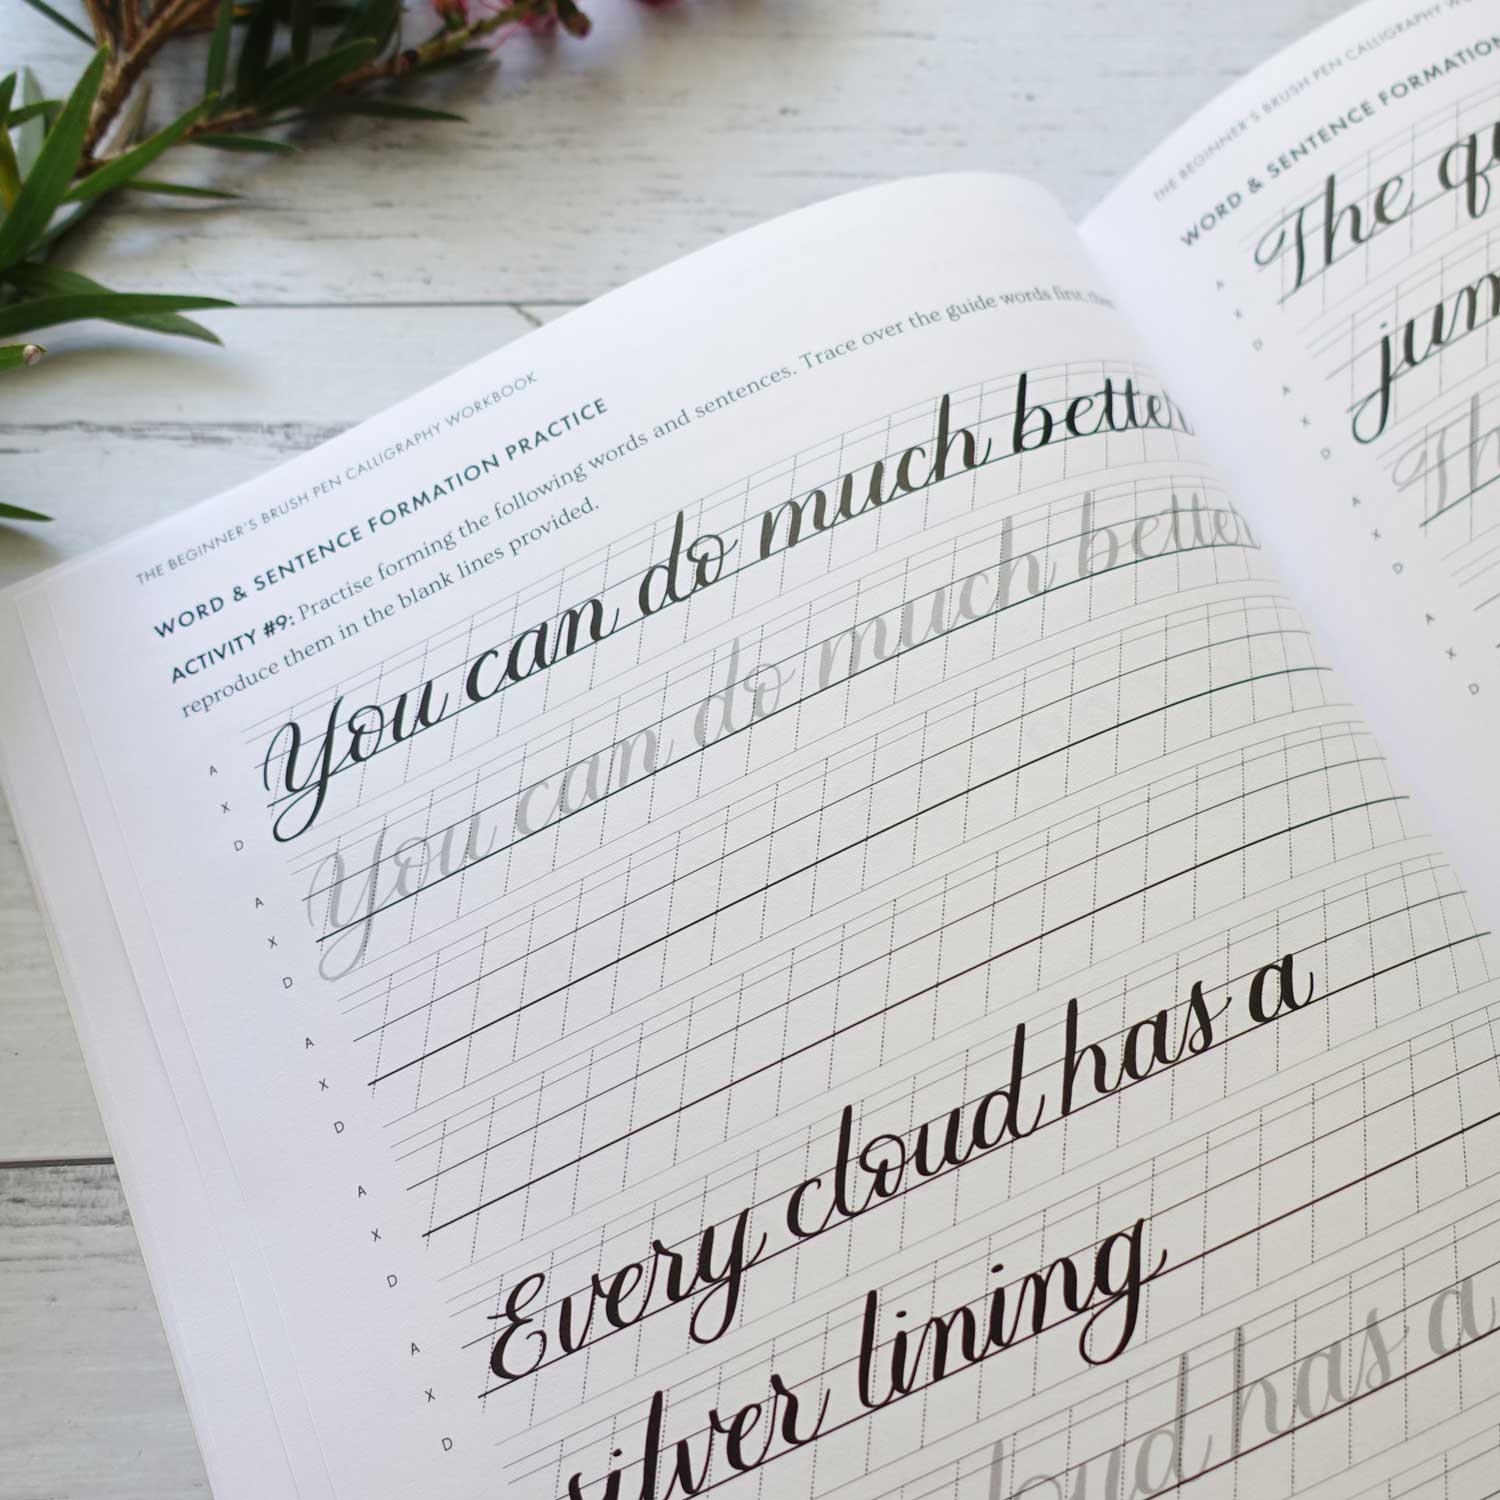 THE BEGINNER'S BRUSH PEN CALLIGRAPHY WORKBOOK
WORD & SENTENCE FORMATION PRACTICE
ACTIVITY #9: Practise forming the following words and sentences. Trace over the guide words first, then
reproduce them in the blank lines provided.
A
X
D
You can do much better
A
X
D
You can do much better
A
X
D
A
X
D
A
X
D
Every cloud has a
silver lining
cloud has a
THE BEGINNER'S BRUSH PEN CALLIGRAPHY
WORD & SENTENCE FORMATION
A
X
D
The
A
X
D
A
X
D
A
X
D